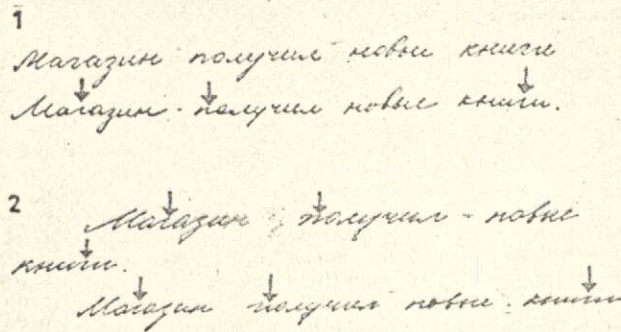 1
Магазин получил новые книги
Магазин получил новые книги.
2
Магазин получил новые
книги.
Магазин получил новые книги